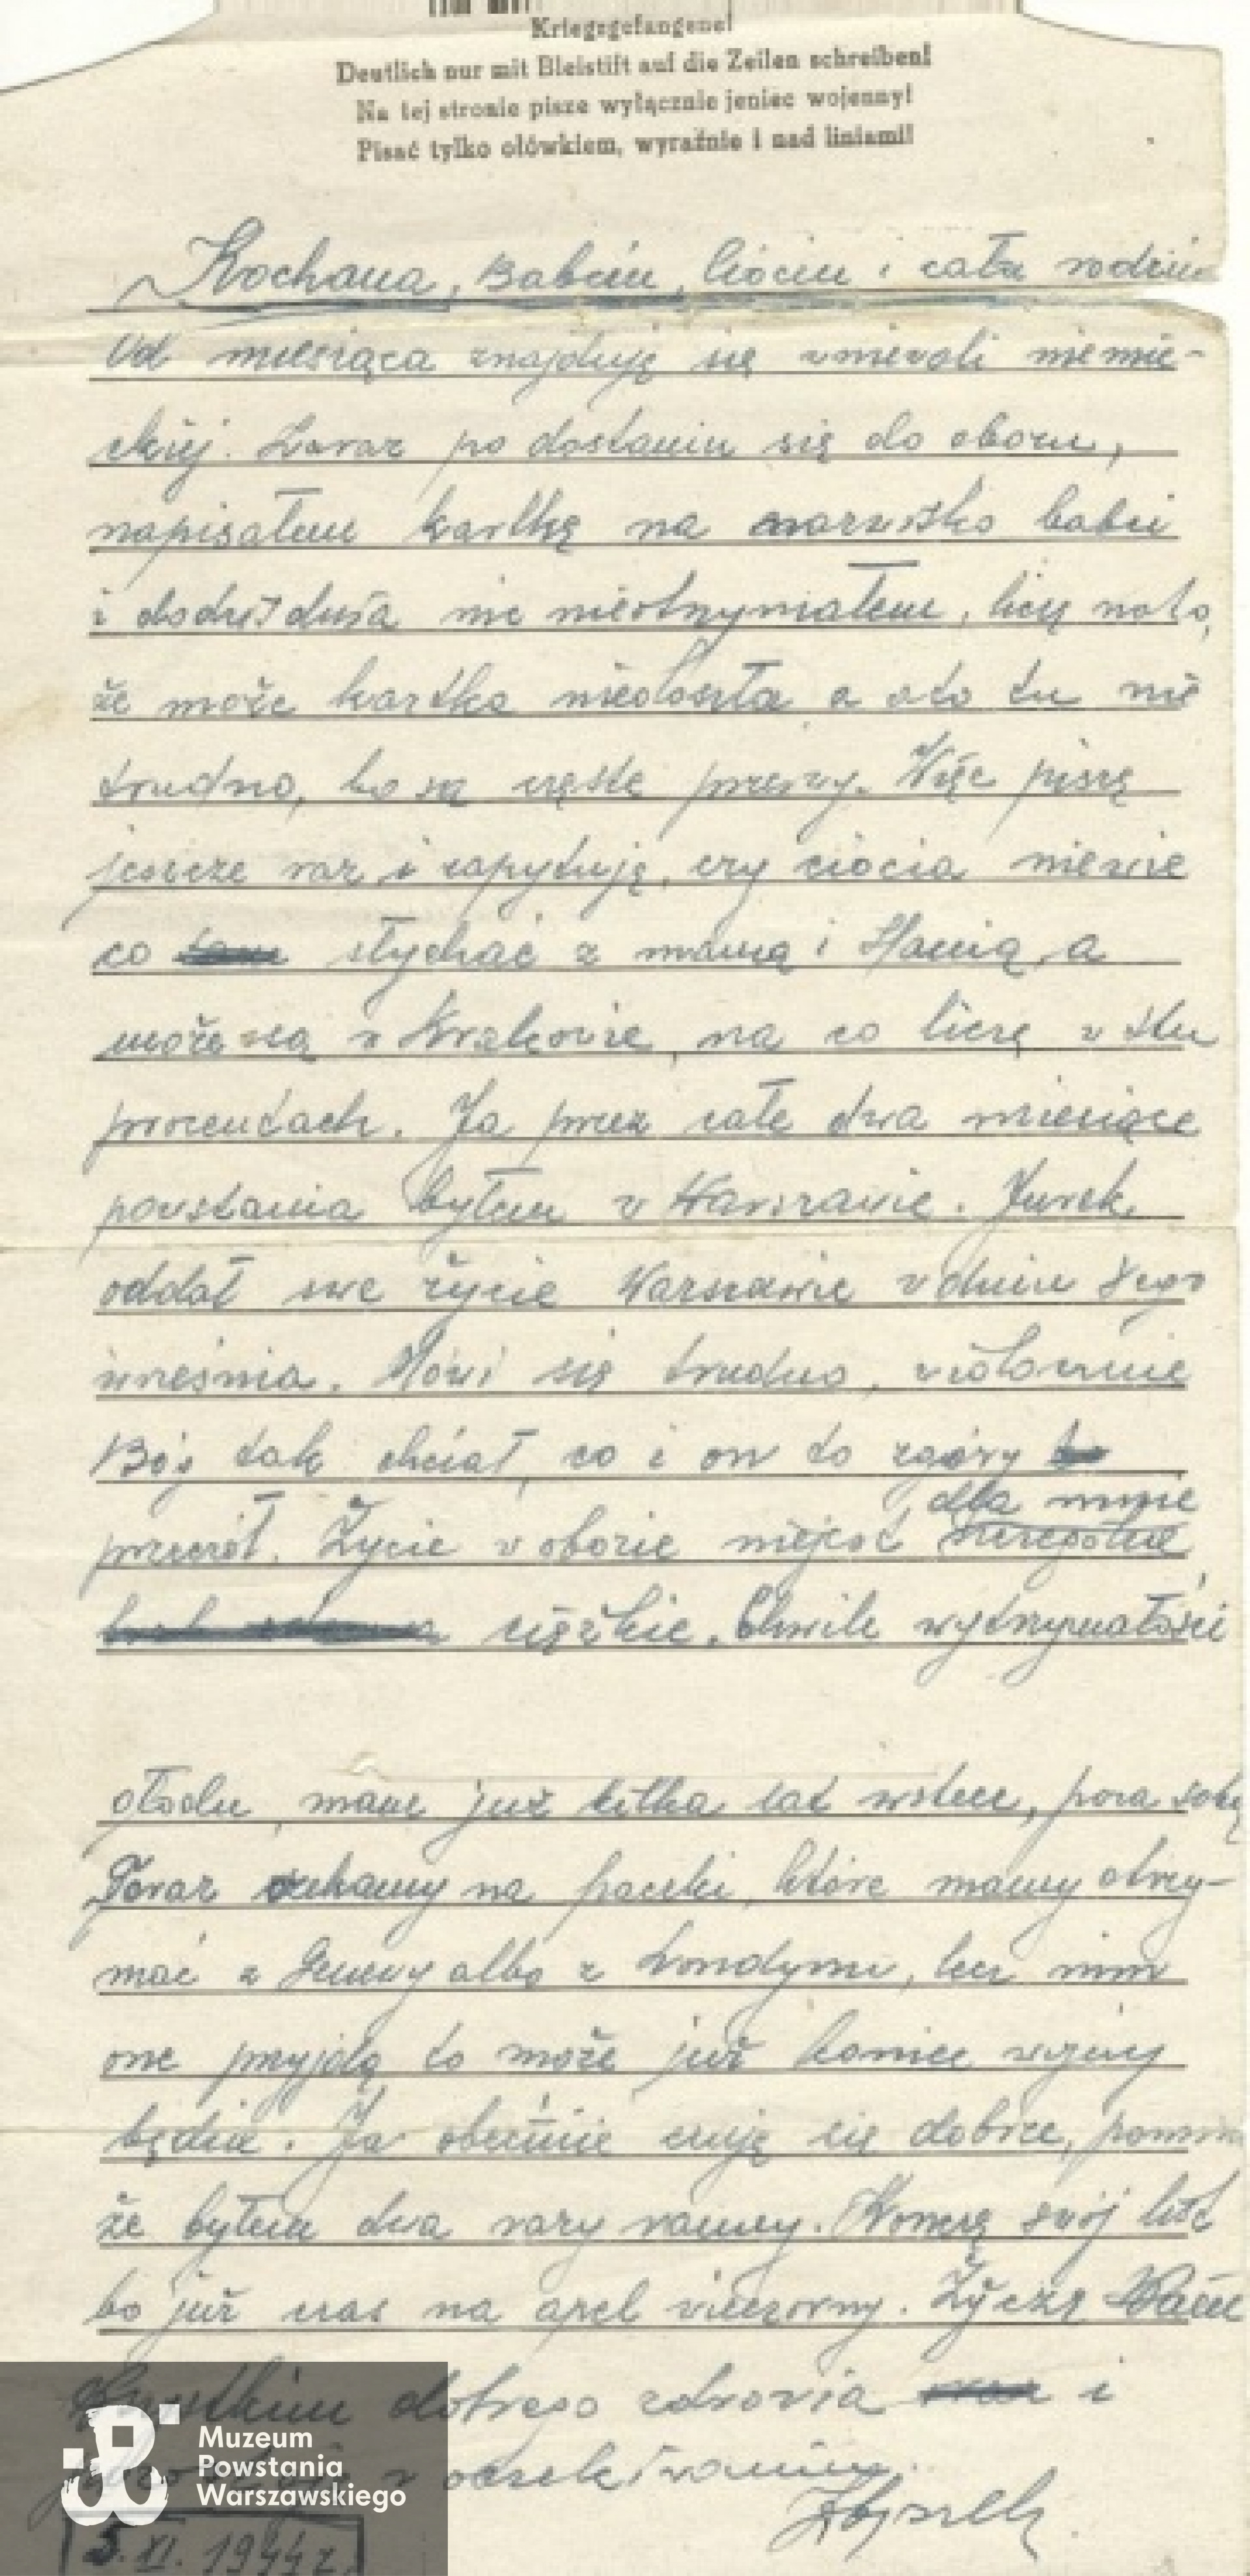 Kriegsgefangene!
Deutlich nur mit Bleistift auf die Zeilen schreiben!
Na tej stronie pisze wyłącznie jeniec wojenny!
Pisać tylko ołówkiem, wyraźnie i nad liniami!
Kochana, Babciu, Ciociu i cała
Od miesiąca znajduję się w niewoli niemie-
ckiej. Zaraz po dostaniu się do obozu,
napisałem kartkę na nazwisko babci
i do dziś dnia nic nieotrzymałem, liczę na to,
że może kartka niedoszła a oto tu nie
trudno, bo są częste przerwy. Więc piszę
jeszcze raz i zapytuję, czy ciocia niewie
co słychać z mamą i a
może są w Krakowie, na co liczę w stu
procentach. Ja przez całe dwa miesiące
powstania byłem w Warszawie. Jurek
oddał swe życie Warszawie w dniu
września. Mówi się trudno, widocznie
Bóg tak chciał, co i on to zgóry
dla mnie
przeczuł. Życie w obozie niejest
ciężkie. Chwile wytrzymałości
głodu, mam już kilka lat wstecz, poza sobą
Teraz czekamy na paczki, które mamy otrzy-
mać z Genewy albo z Londynu, lecz nim
one przyjdą to może już koniec wojny
będzie. Ja obecnie czuję się dobrze,
że byłem dwa razy ranny. Kończę swój list
bo już czas na apel wieczorny. Życzę Wam
dobrego zdrowia i
w oczekiwaniu.
Zbyszek
5.XI.1944 r.
Muzeum
Powstania
Warszawskiego